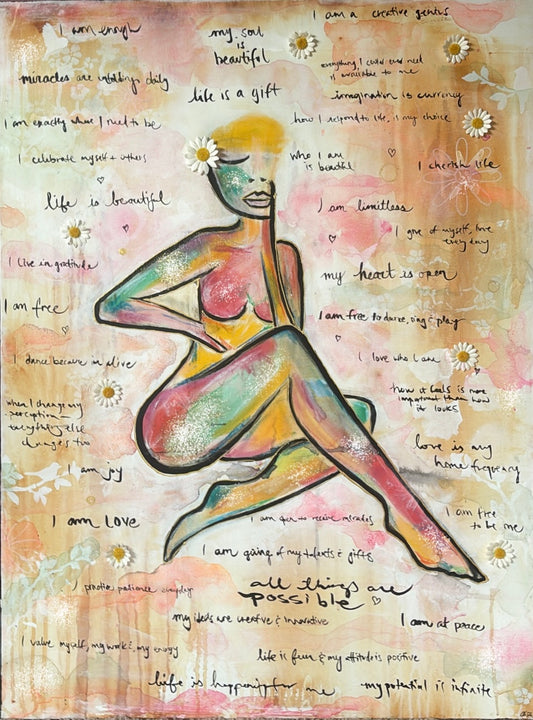 I am a creative genius
I am enough
my soul
is
beautiful
everything I could ever need
is available to me
miracles are unfolding daily
life is a gift
imagination is currency
I am exactly where I need to be
how I respond to life, is my choice
I celebrate myself + others
who I am
is beautiful
I cherish life
life is beautiful
I am limitless
I give of myself, love
every day
I live in gratitude
my heart is open
I am free
I am free to dance, sing & play
I dance because im alive
I love who I am
how it feels is more
important than how
it looks
when I change my
perception —
everything else
changes too
love is my
home frequency
I am joy
I am LOVE
I am open to receive miracles
I am free
to be me
I am giving of my talents & gifts
I practice patience everyday
all things are
possible
my ideas are creative & innovative
I am at peace
I value myself, my work & my energy
life is fun & my attitude is positive
life is happening for me
my potential is infinite